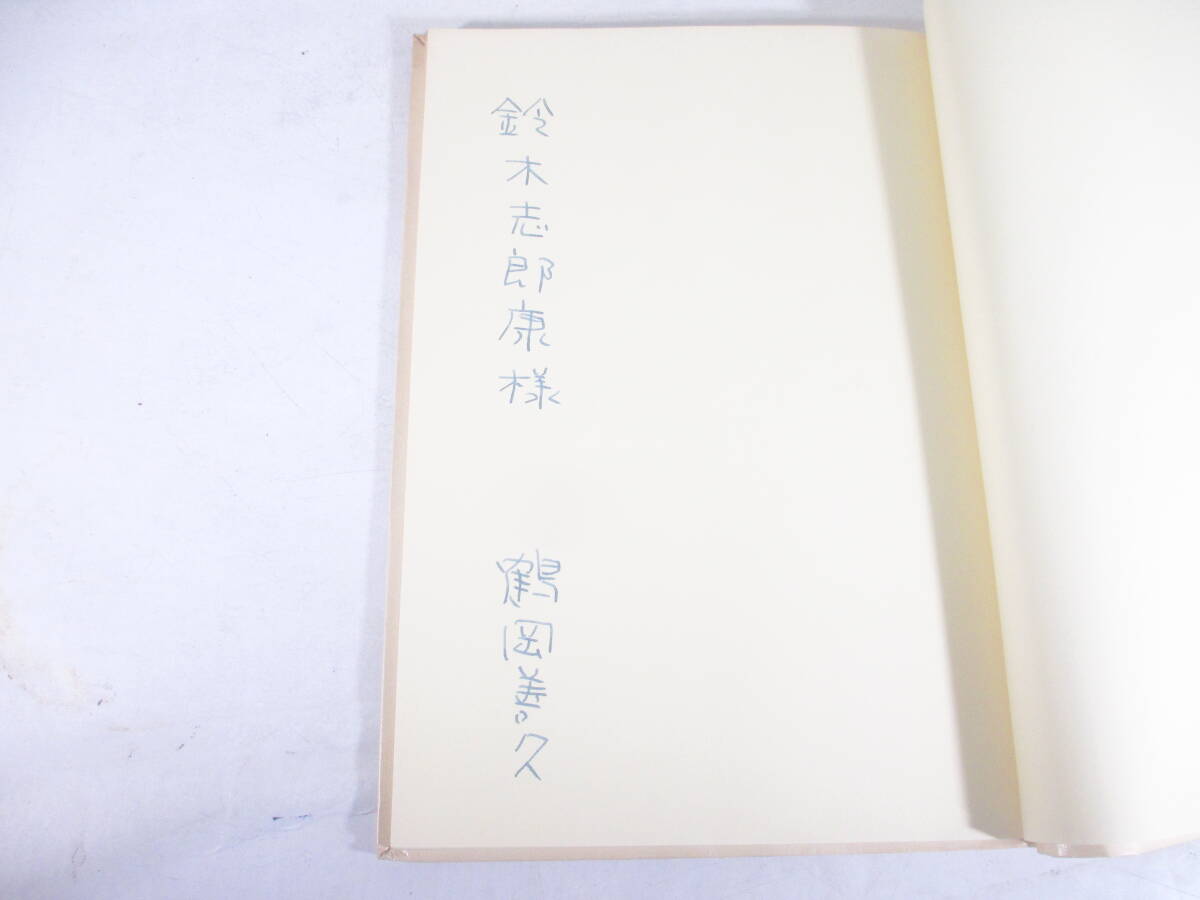 鈴木志郎康様
鶴岡善久